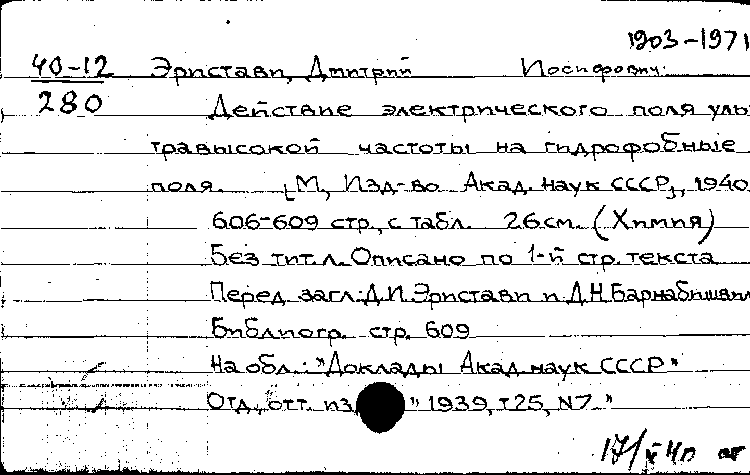 1903-1971
40-12 Эристави, Дмитрий Иосифович.
280 Действие электрического поля уль
травысокой частоты на гидрофобные
поля. [М, Изд-во Акад. наук СССР], 1940
606-609 стр., с табл. 26 см. (Химия)
Без тит. л. Описано по 1-й стр. текста
Перед загл.: Д.И. Эристави и Д.Н. Барнабишвили
Библиогр. стр. 609
На обл.: "Доклады Акад наук СССР"
Отд. отт. из " 1939, т 25, N7."
17/X 40